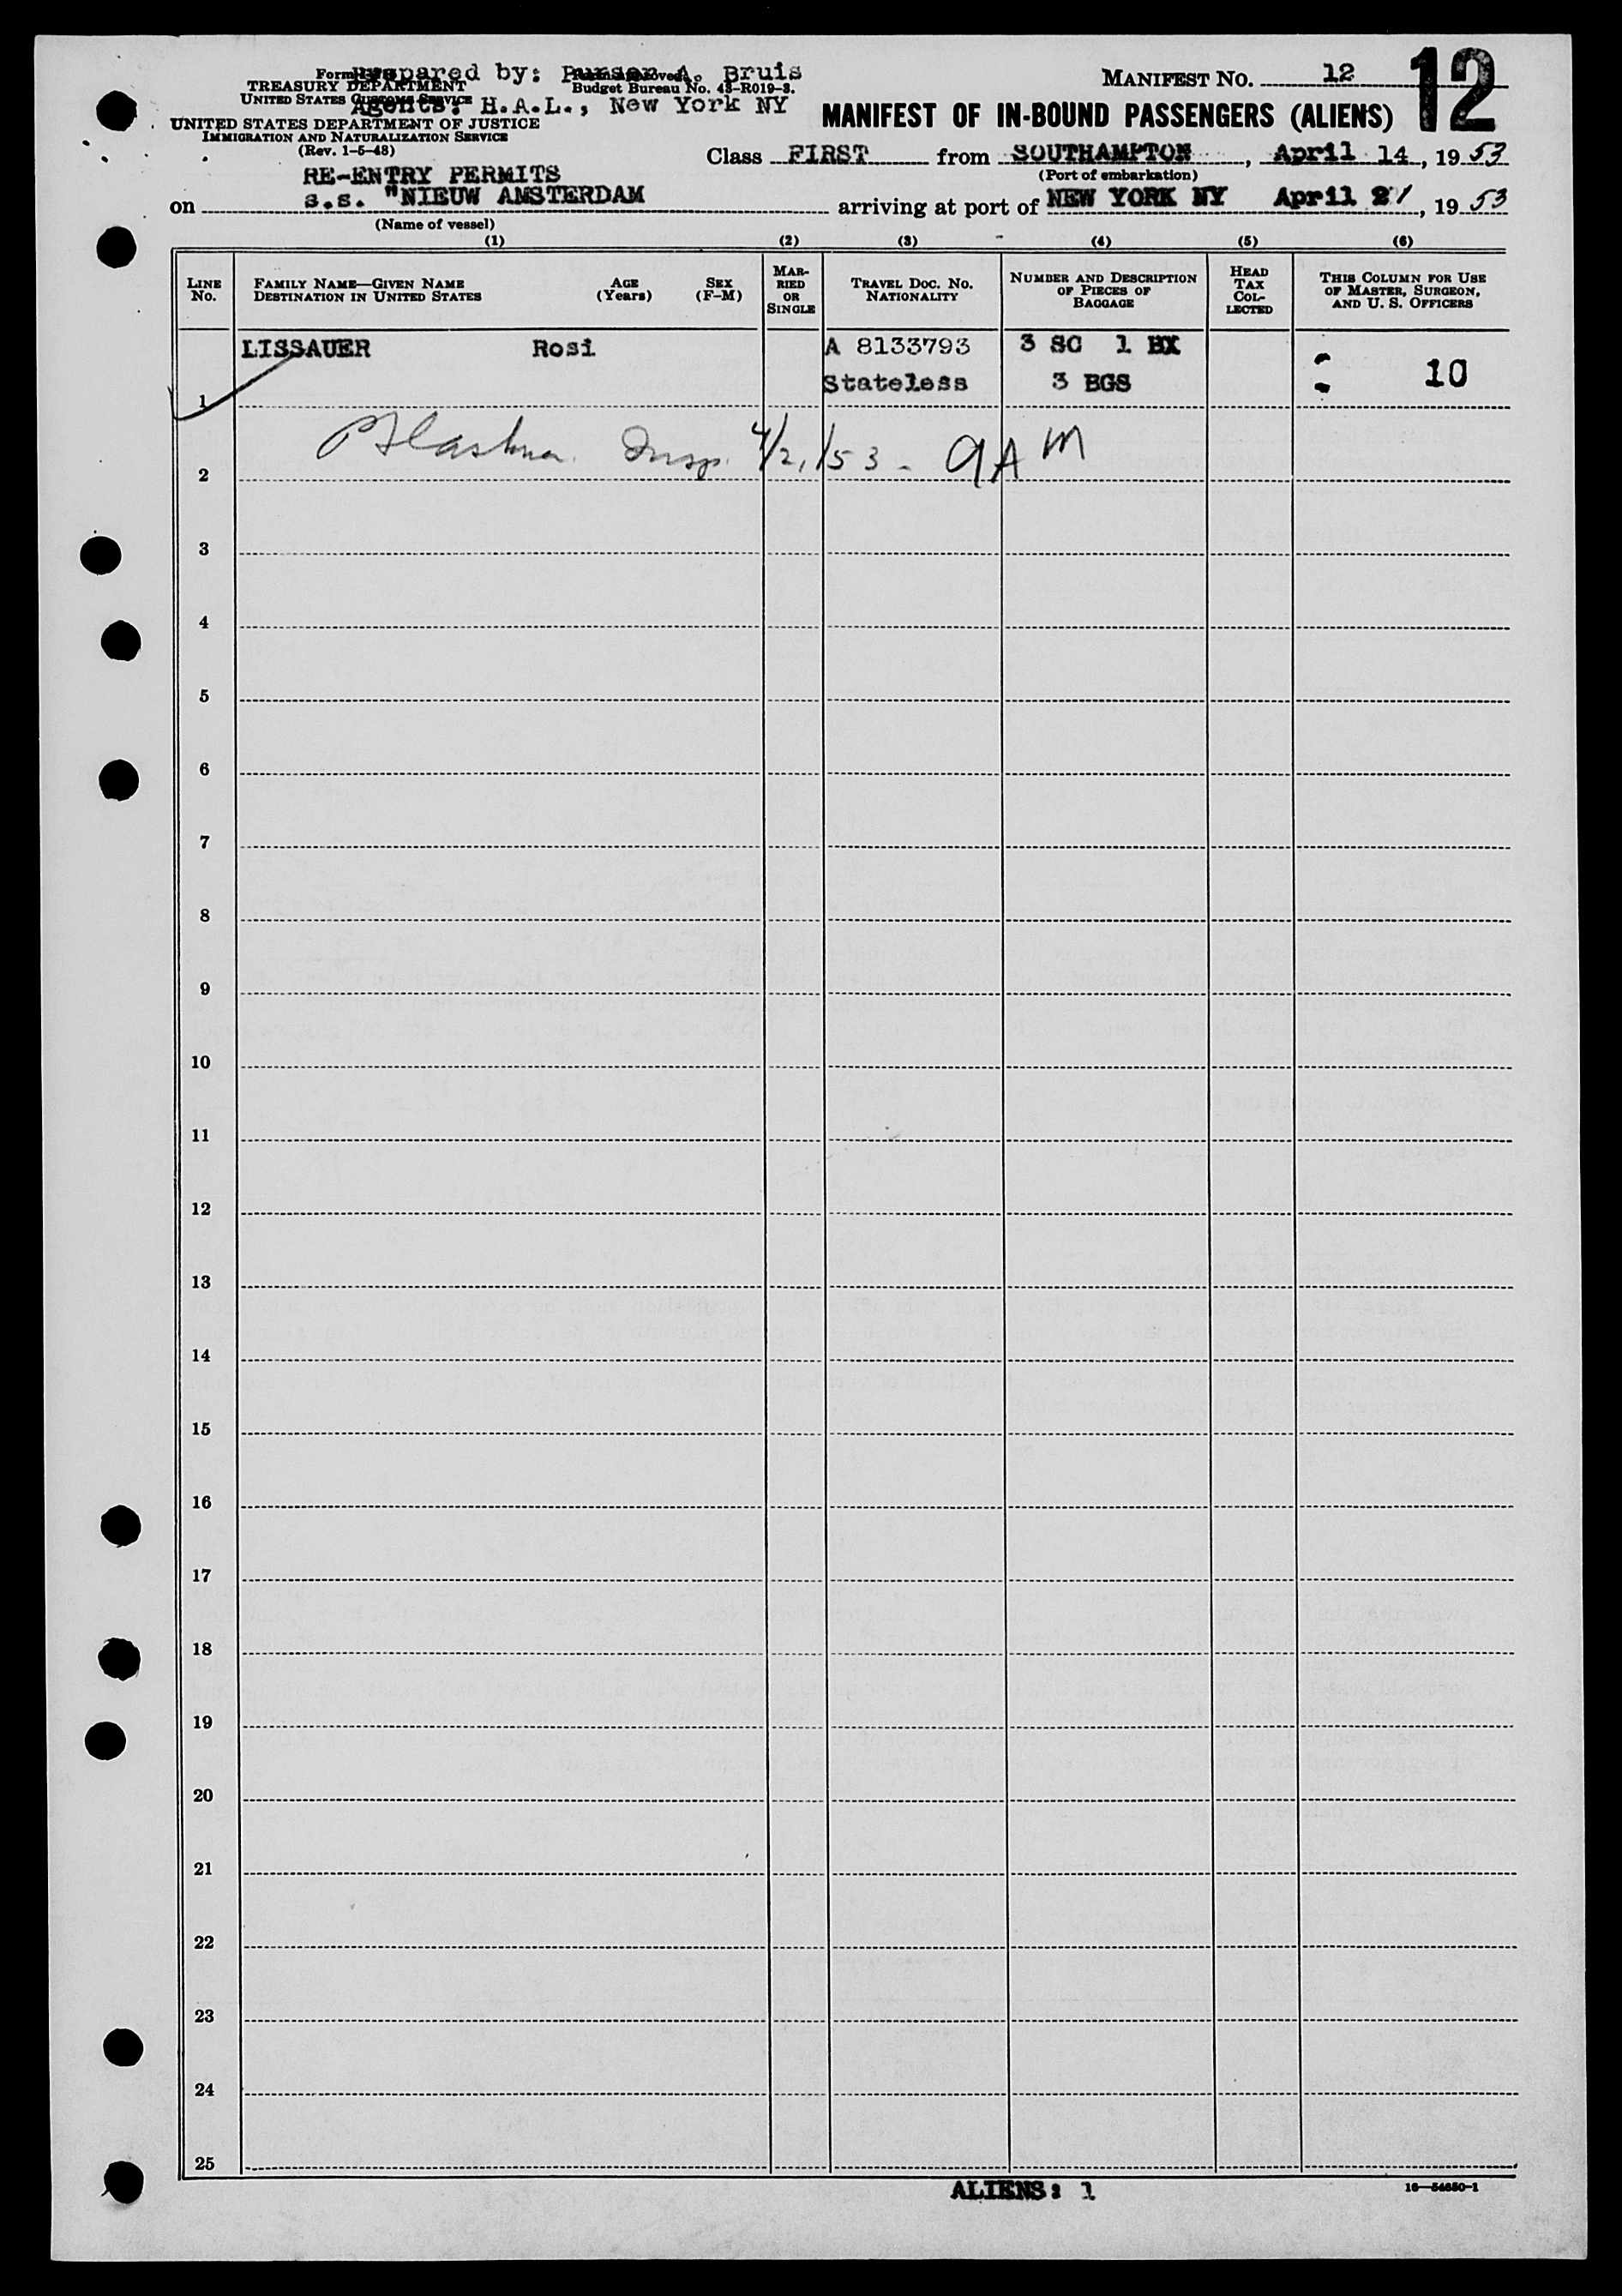 prepared by: Purser A. Bruis
Budget Bureau No. 43-R019-3.
TREASURY DEPARTMENT
UNITED STATES CUSTOMS SERVICE
Agents: H.A.L., New York NY
UNITED STATES DEPARTMENT OF JUSTICE
IMMIGRATION AND NATURALIZATION SERVICE
(Rev. 1-5-48)
MANIFEST NO. 12
12
MANIFEST OF IN-BOUND PASSENGERS (ALIENS)
Class FIRST from SOUTHAMPTON, April 14, 1953
(Port of embarkation)
RE-ENTRY PERMITS
on s.s. "NIEUW AMSTERDAM arriving at port of NEW YORK NY April 21, 1953
(Name of vessel)
(1) (2) (3) (4) (5) (6)
LINE NO.
FAMILY NAME—GIVEN NAME
DESTINATION IN UNITED STATES
AGE (Years)
SEX (F-M)
MARRIED OR SINGLE
TRAVEL DOC. NO.
NATIONALITY
NUMBER AND DESCRIPTION OF PIECES OF BAGGAGE
HEAD TAX COLLECTED
THIS COLUMN FOR USE OF MASTER, SURGEON, AND U. S. OFFICERS
LISSAUER Rosi A 8133793 3 SC 1 BX
Stateless 3 BGS 10
1
Insp. 4/21/53 - 9 AM
2
3
4
5
6
7
8
9
10
11
12
13
14
15
16
17
18
19
20
21
22
23
24
25
ALIENS: 1
16—54650-1